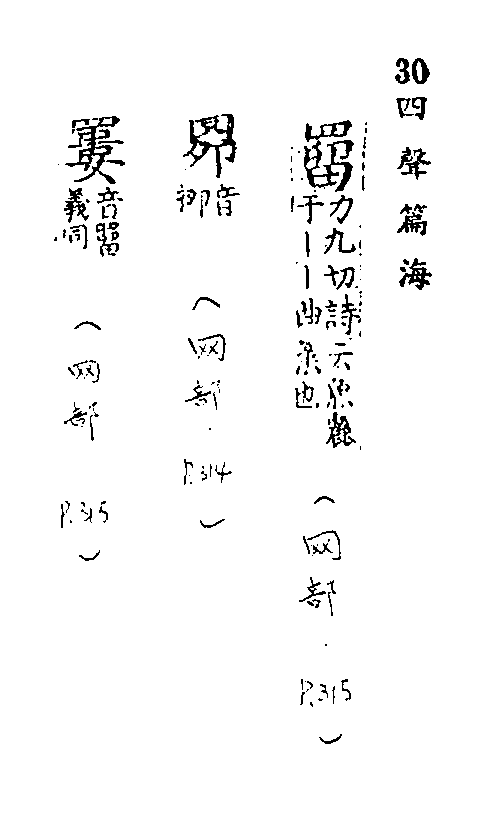 30四聲篇海
罶
力九切詩云魚麗
于丨丨曲梁也
(网部.P.315)
音
(网部.P.314)
音罶
義同
(网部 P.315)